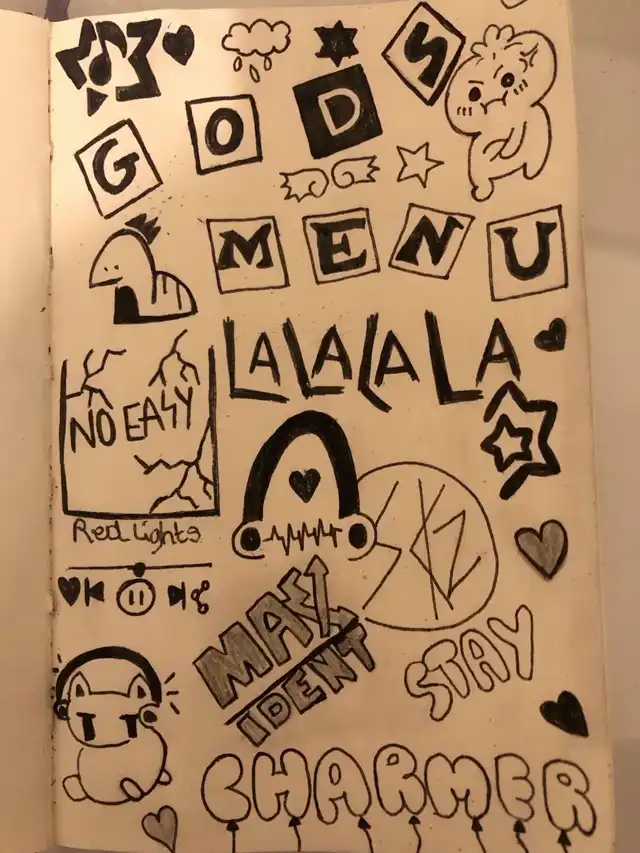 GODS
MENU
LALALALA
NO EASY
Red Lights
SKZ
MANIAC
IDENT
STAY
CHARMER